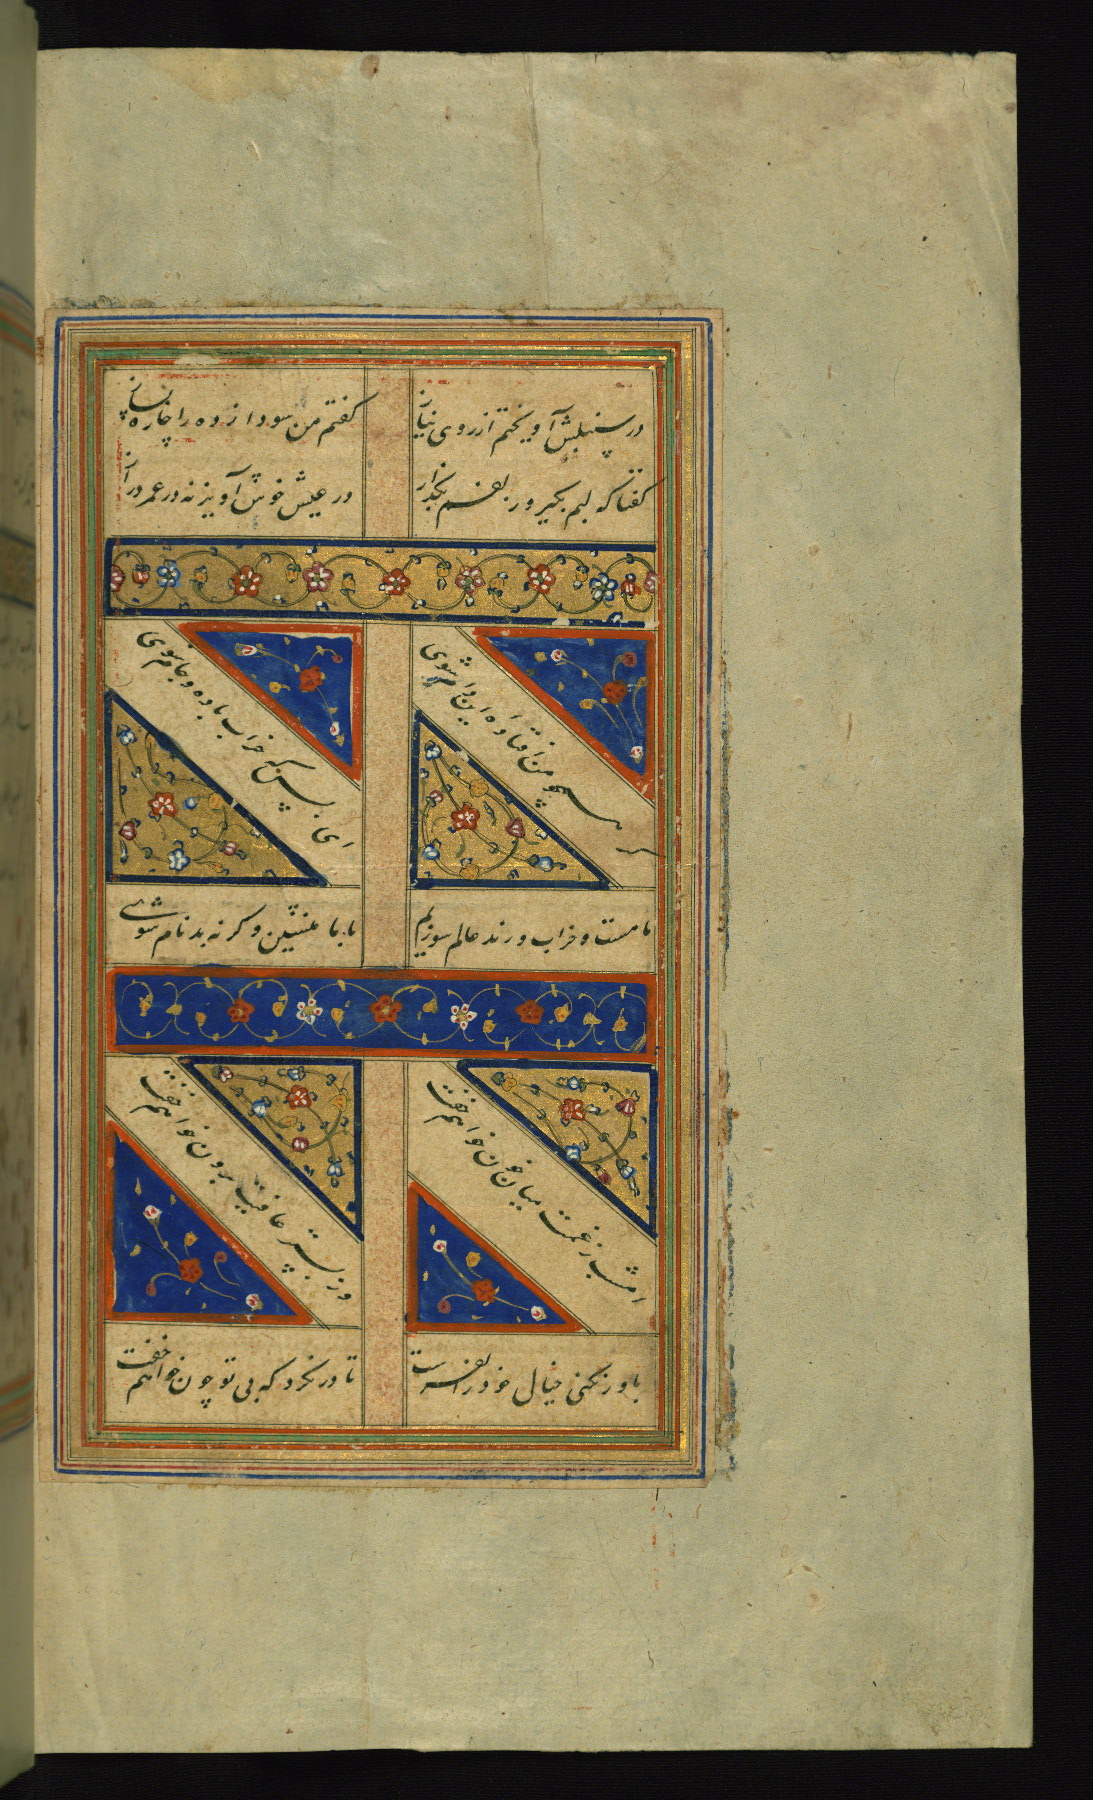 در سنبلش آویختم از روی نیاز
گفتم من سودازده را چاره بساز
گفتا که لبم بگیر و زلفم بگذار
در عیش خوش آویز نه در عمر دراز
هر کس چو من افتاده این دام شوی
ای بس که خراب باده و جام شوی
ما مست و خراب و رند عالم سوزیم
با ما منشین وگرنه بدنام شوی
امشب ز غمت میان خون خواهم خفت
وز بستر عافیت برون خواهم خفت
باور نکنی خیال خود را بفرست
تا در نگرد که بی تو چون خواهم خفت